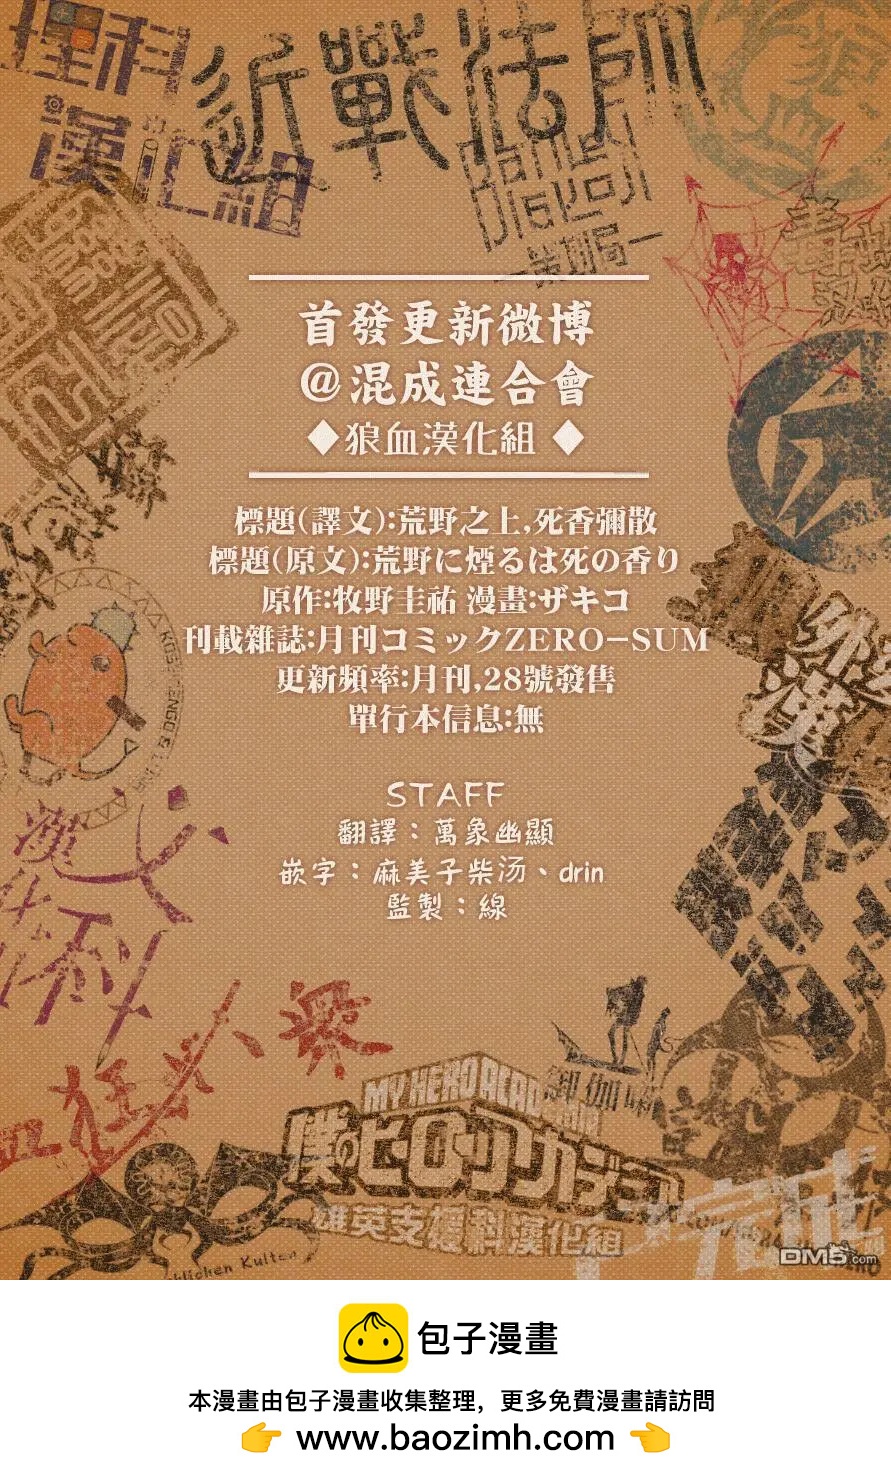 理科
漢化組
近戰法師
策划局
狼血
首發更新微博
@混成連合會
◆狼血漢化組 ◆
標題(譯文):荒野之上,死香彌散
標題(原文):荒野に煙るは死の香り
原作:牧野圭祐 漫畫:ザキコ
刊載雜誌:月刊コミックZERO-SUM
更新頻率:月刊,28號發售
單行本信息:無
STAFF
翻譯：萬象幽顯
嵌字：麻美子柴汤、drin
監製：線
MY HERO ACADEMIA
僕のヒーローアカデミア
雄英支援科漢化組
DM5.com
包子漫畫
本漫畫由包子漫畫收集整理，更多免費漫畫請訪問
👉 www.baozimh.com 👈